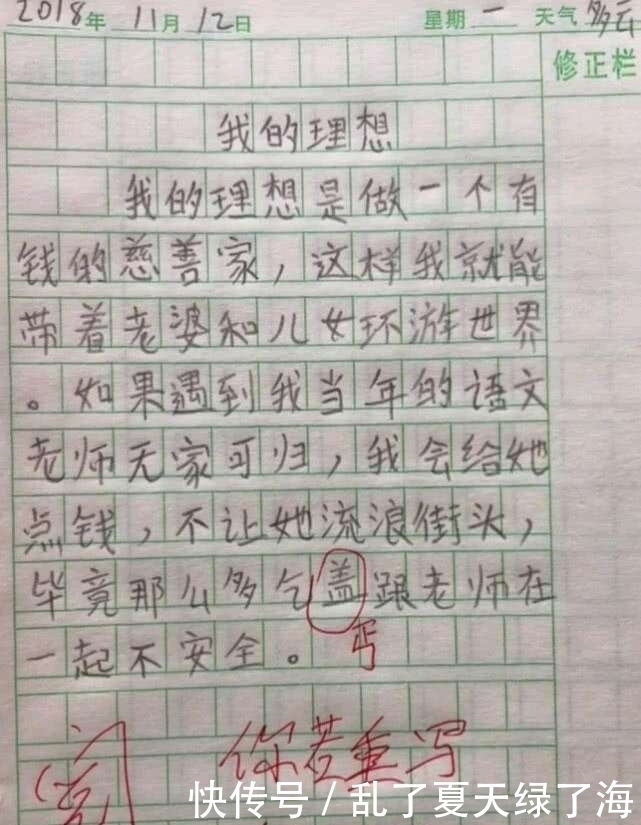 2018年 11月 12日 星期一 天气 多云
修正栏
我的理想
我的理想是做一个有
钱的慈善家，这样我就能
带着老婆和儿女环游世界
。如果遇到我当年的语文
老师无家可归，我会给她
点钱，不让她流浪街头，
毕竟那么多乞盖跟老师在
一起不安全。丐
你若重写
快传号/乱了夏天绿了海